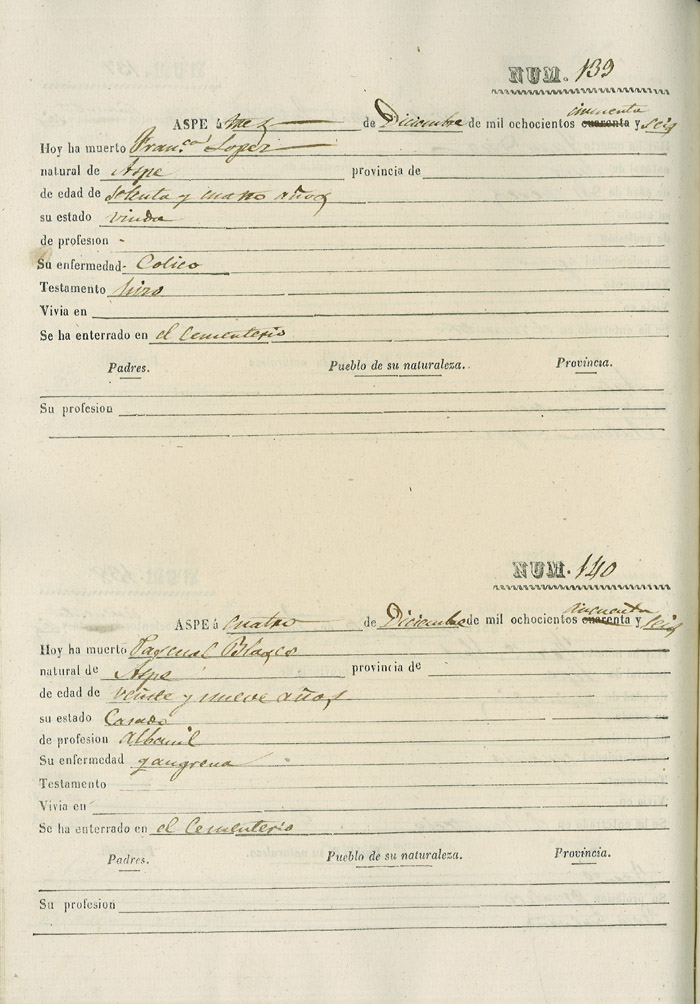 NUM. 139
cincuenta
ASPE á tres de Diciembre de mil ochocientos cuarenta y seis
Hoy ha muerto Fran.ca Lopez
natural de Aspe provincia de
de edad de setenta y cuatro años
su estado viuda
de profesion -
Su enfermedad- Colico
Testamento hizo
Vivia en
Se ha enterrado en el Cementerio
Padres. Pueblo de su naturaleza. Provincia.
Su profesion
NUM. 140
cincuenta
ASPE á cuatro de Diciembre de mil ochocientos cuarenta y seis
Hoy ha muerto Pascual Blasco
natural de Aspe provincia de
de edad de veinte y nueve años
su estado Casado
de profesion Albanil
Su enfermedad gangrena
Testamento
Vivia en
Se ha enterrado en el Cementerio
Padres. Pueblo de su naturaleza. Provincia.
Su profesion